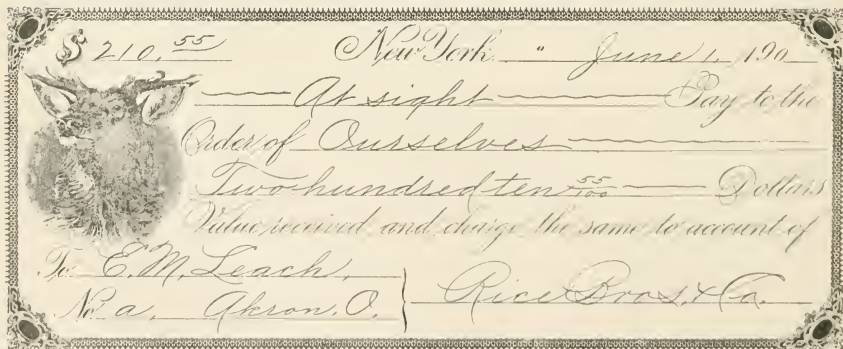 $ 210.55 New York " June 1, 190
At sight Pay to the
Order of Ourselves
Two hundred ten 55/100 Dollars
Value received and charge the same to account of
To E. M. Leach,
No. a, Akron, O. Rice Bros. & Co.